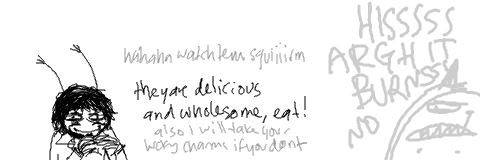 hahaha watch tem squiiirm
they are delicious
and wholesome, eat!
also I will take your
worry charms if you dont
HISSSSS
ARGH IT
BURNSSS
NO